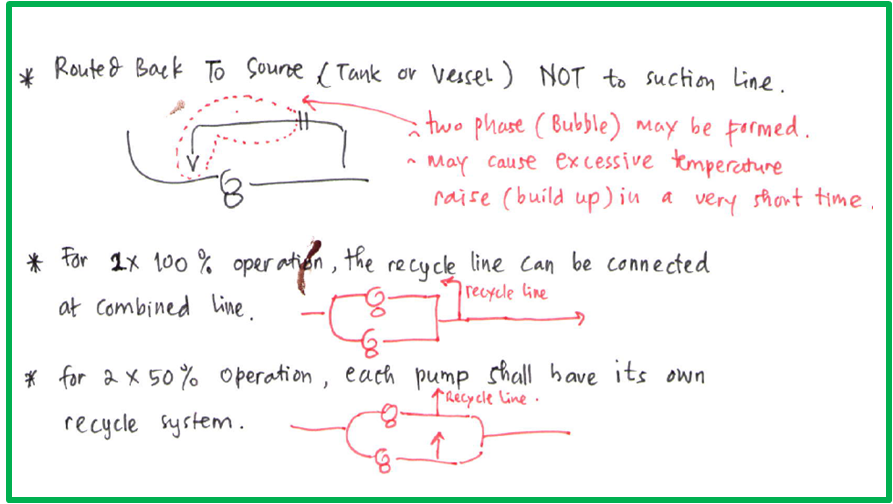 * Routed Back To Source (Tank or Vessel) NOT to suction Line.
~ two phase (Bubble) may be formed.
~ May cause excessive temperature
raise (build up) in a very short time.
* For 1x 100% operation, the recycle line can be connected
at combined line.
recycle line
* for 2 x 50% operation, each pump shall have its own
recycle system.
Recycle Line.